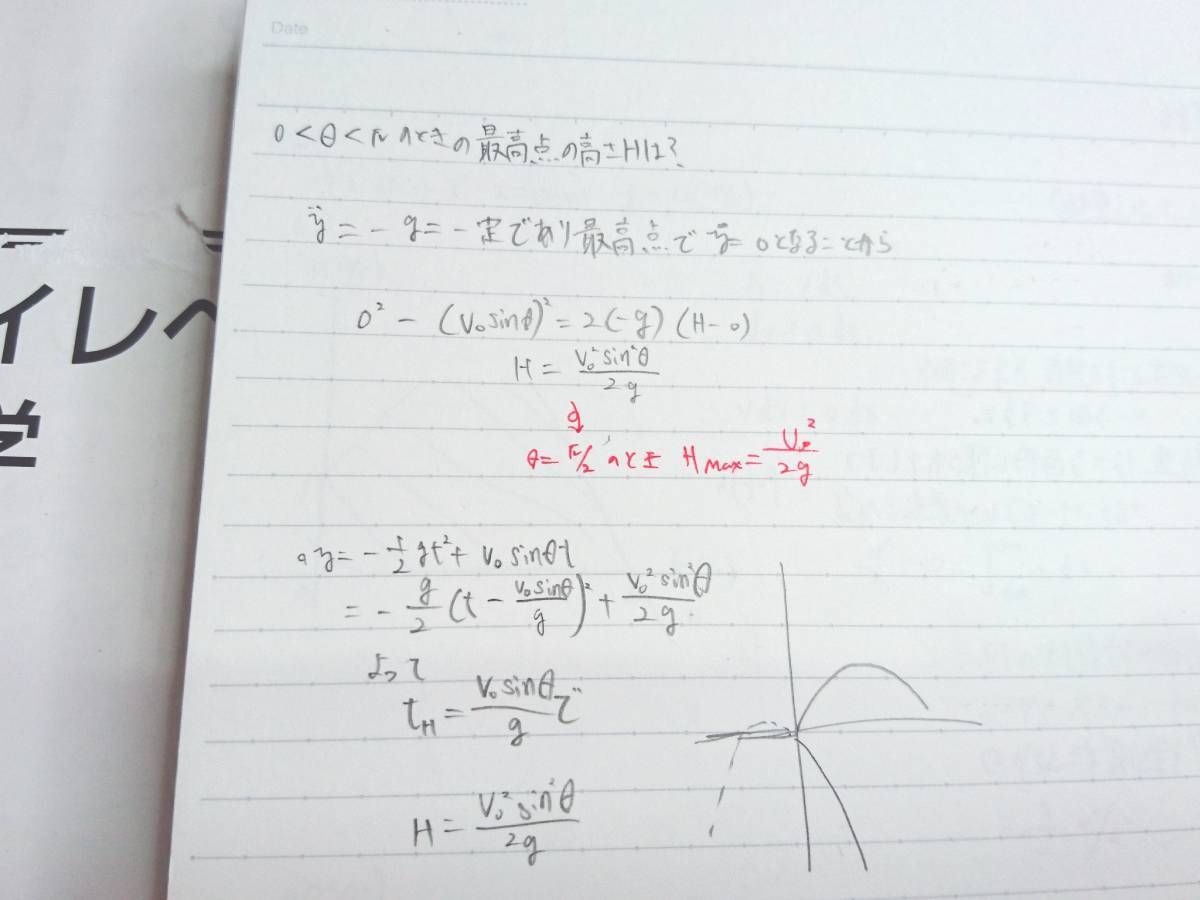 Date
0<θ<π のときの最高点の高さHは?
ÿ = -g = 一定であり最高点で ẏ= 0となることから
0² - (V₀sinθ)² = 2(-g)(H-0)
H = V₀²sin²θ/2g
↓
θ= π/2 のとき H max = V₀²/2g
イレベ
学
。y= -1/2 gt² + V₀ sinθt
= -g/2 (t - V₀sinθ/g)² + V₀²sin²θ/2g
よって
t_H = V₀sinθ/g で
H = V₀²sin²θ/2g